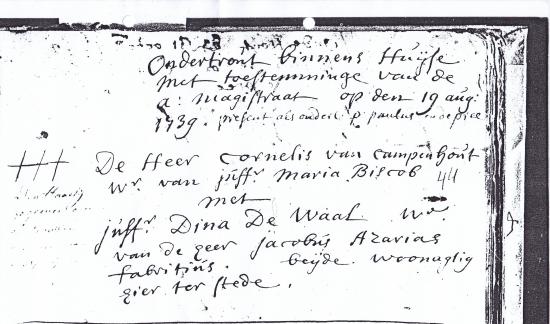 Ondertrout binnens Huyse
met toestemminge van de
a: magistraat op den 19 aug:
1739. present als ouderl: p. paulus
De Heer Cornelis van Campenhout
wr. van juffr Maria Biscob 44
met
juffr. Dina De Waal wr.
van de Heer Jacobus Azarias
fabritius. beyde woonagtig
hier ter stede.